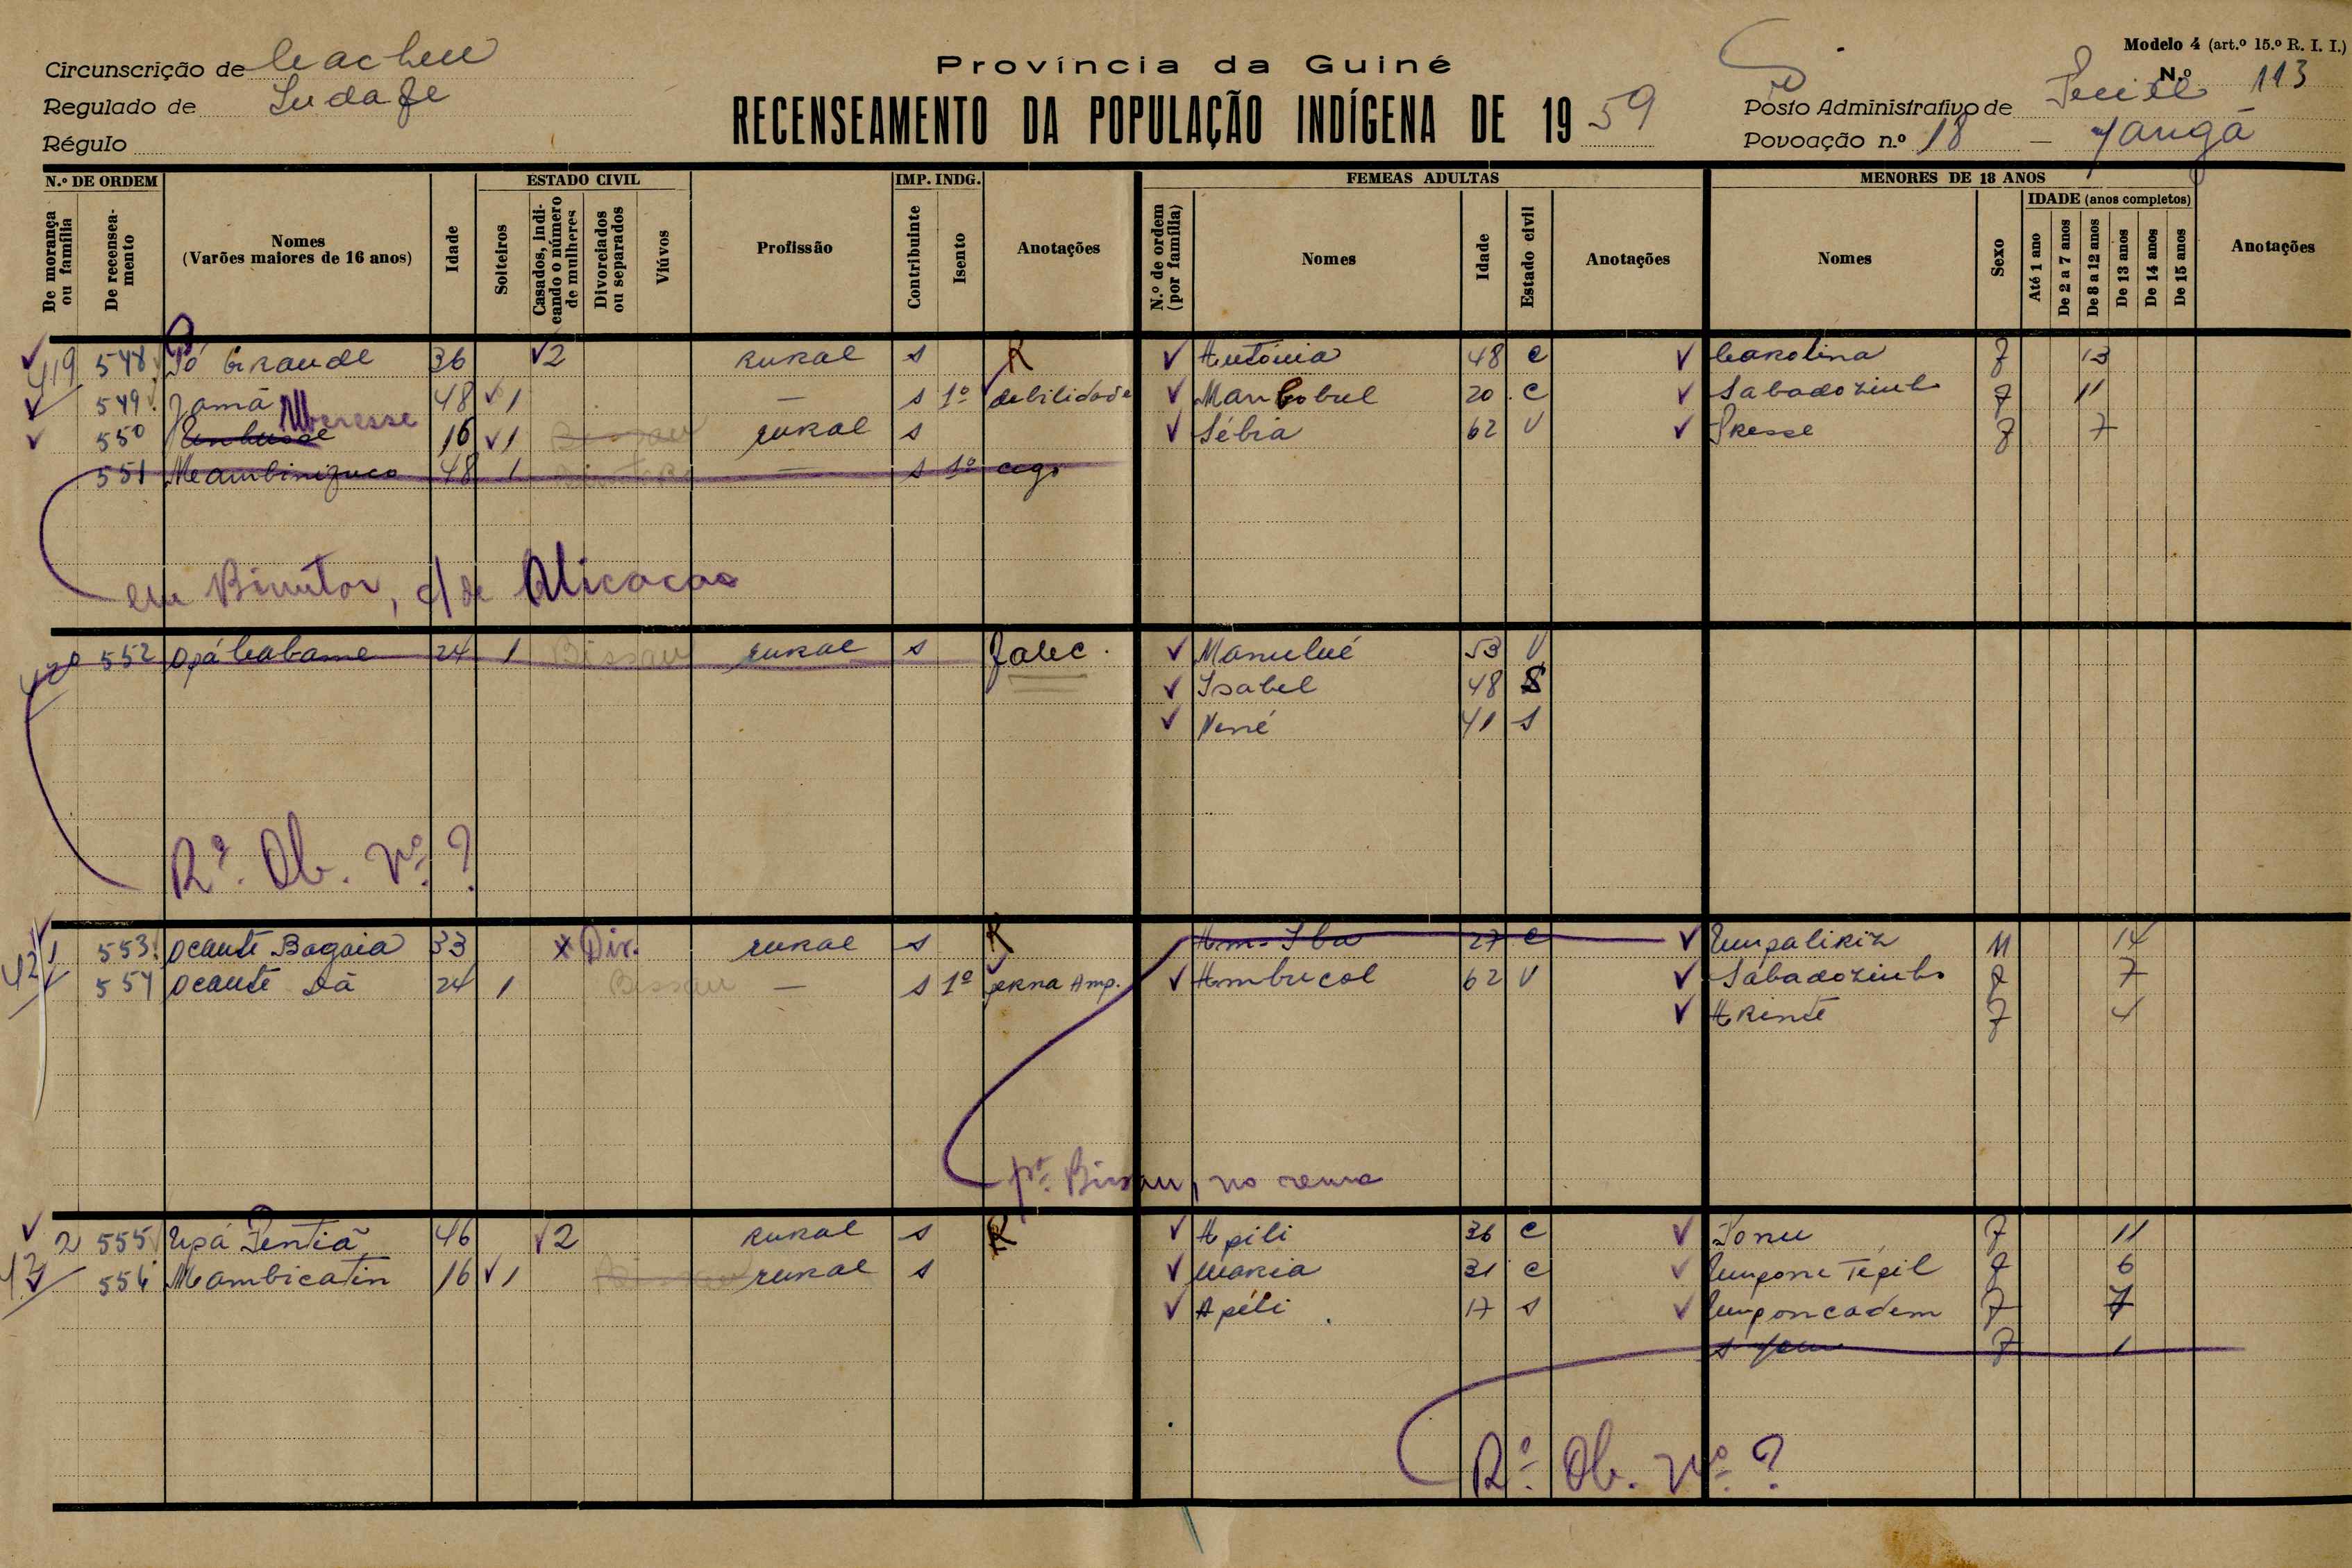 Modelo 4 (art.º 15.º R. I. I.)
Circunscrição de Cacheu
Província da Guiné
N.º 113
Regulado de
RECENSEAMENTO DA POPULAÇÃO INDÍGENA DE 19 59
Posto Administrativo de
Régulo
Povoação n.º 18 — Jangã
N.º DE ORDEM
ESTADO CIVIL
IMP. INDG.
FEMEAS ADULTAS
MENORES DE 18 ANOS
De morança ou família
De recenseamento
Nomes (Varões maiores de 16 anos)
Idade
Solteiros
Casados, indicando o número de mulheres
Divorciados ou separados
Viúvos
Profissão
Contribuinte
Isento
Anotações
N.º de ordem (por família)
Nomes
Idade
Estado civil
Anotações
Nomes
Sexo
IDADE (anos completos)
Até 1 ano
De 2 a 7 anos
De 8 a 12 anos
De 13 anos
De 14 anos
De 15 anos
Anotações
419 548 Pó Grande 36 2 rural s R Antónia 48 C Carolina F 13
549 Jamã 48 1 — s 1º debilidade Manbobul 20 C Sabadozinho F 11
550 16 1 Bissau rural s Sébia 62 V Presse F 7
551 48 1 — s 1º cego
em Binutor, c/ de Alicacao
420 552 Opá Cabame 24 1 Bissau rural s Falec. Manulué 53 V
Isabel 48 S
Nené 41 s
Rº. Ob. Nº. ?
421 553 Ocante Bagaia 33 x Div. rural s R 27 C Empalikiz M 14
554 Ocante Dã 24 1 Bissau — s 1º perna Amp. Ambucol 62 V Sabadozinho F 7
Akinte F 4
pª. Bissau, no cema
422 555 Upá Pentiã 46 2 rural s R Apili 36 C Tonu F 11
556 Mambicatin 16 1 Bissau rural s Maria 31 C Empone Tepil F 6
Apéli 17 s Emponcadem F 7
s/ nome F 1
Rº. Ob. Nº. ?